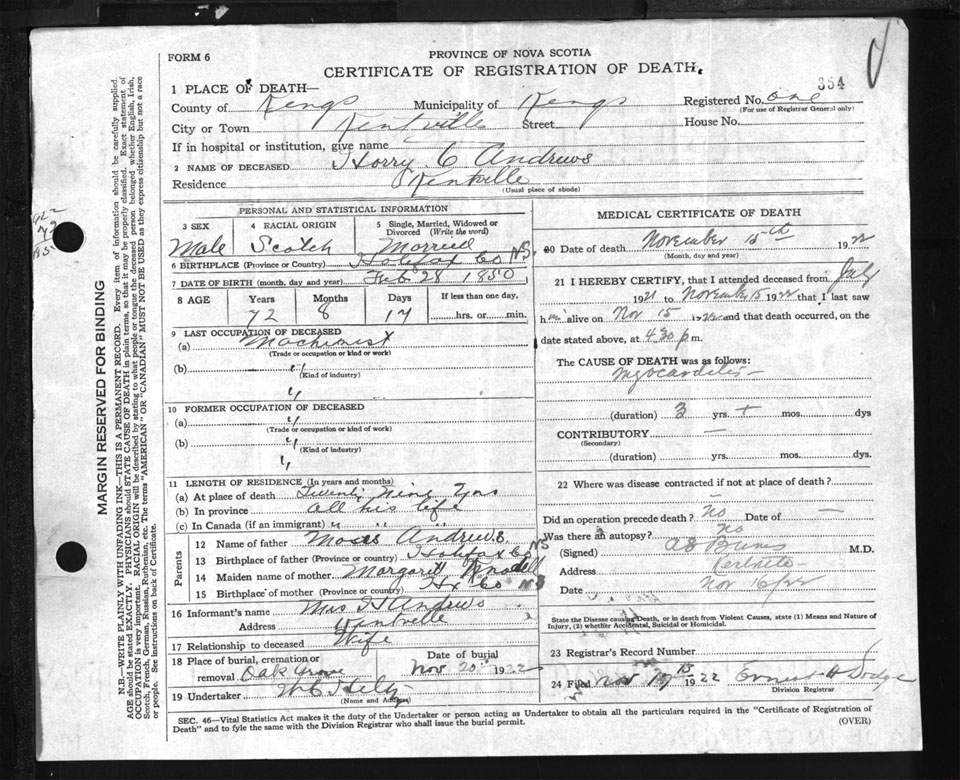 FORM 6
PROVINCE OF NOVA SCOTIA
CERTIFICATE OF REGISTRATION OF DEATH.
354
1 PLACE OF DEATH—
County of Kings Municipality of Kings Registered No. one
(For use of Registrar General only)
City or Town Kentville Street House No.
If in hospital or institution, give name
2 NAME OF DECEASED Harry C Andrews
Residence Kentville
(Usual place of abode)
PERSONAL AND STATISTICAL INFORMATION
3 SEX Male
4 RACIAL ORIGIN Scotch
5 Single, Married, Widowed or Divorced (Write the word) Married
6 BIRTHPLACE (Province or Country) Halifax Co NS.
7 DATE OF BIRTH (month, day and year) Feb 28 1850
8 AGE Years Months Days If less than one day,
72 8 17 hrs. or min.
9 LAST OCCUPATION OF DECEASED
(a) Machinist
(Trade or occupation or kind of work)
(b) "
(Kind of industry)
"
10 FORMER OCCUPATION OF DECEASED
(a) "
(Trade or occupation or kind of work)
(b) "
(Kind of industry)
"
11 LENGTH OF RESIDENCE (In years and months)
(a) At place of death Twenty Nine Yrs
(b) In province all his life
(c) In Canada (if an immigrant) " " "
Parents
12 Name of father Moses Andrews.
13 Birthplace of father (Province or country) Halifax Co NS
14 Maiden name of mother Margaret
15 Birthplace of mother (Province or country) Hx Co NS
16 Informant's name Mrs H Andrews
Address Kentville
17 Relationship to deceased Wife
18 Place of burial, cremation or removal Oak Grove
Date of burial Nov 20 1922
19 Undertaker
(Name and Address)
MEDICAL CERTIFICATE OF DEATH
20 Date of death November 15th 1922
(Month, day and year)
21 I HEREBY CERTIFY, that I attended deceased from July
1921 to November 15 1922 that I last saw
him alive on Nov 15 1922 and that death occurred, on
date stated above, at 4 30 p m.
The CAUSE OF DEATH was as follows:
Myocarditis
(duration) 3 yrs. + mos. dys
CONTRIBUTORY —
(Secondary)
(duration) yrs. mos. dys.
22 Where was disease contracted if not at place of death?
—
Did an operation precede death? No Date of —
Was there an autopsy? No
(Signed) M.D.
Address
Date Nov 16/22
State the Disease causing Death, or in death from Violent Causes, state (1) Means and Nature of
Injury, (2) whether Accidental, Suicidal or Homicidal.
23 Registrar's Record Number
24 Filed Nov 1922 Ernest H Dodge
Division Registrar
SEC. 46—Vital Statistics Act makes it the duty of the Undertaker or person acting as Undertaker to obtain all the particulars required in the "Certificate of Registration of
Death" and to fyle the same with the Division Registrar who shall issue the burial permit.
(OVER)
MARGIN RESERVED FOR BINDING
N.B.—WRITE PLAINLY WITH UNFADING INK—THIS IS A PERMANENT RECORD. Every item of information should be carefully supplied.
AGE should be stated EXACTLY. PHYSICIANS should STATE CAUSE OF DEATH in plain terms, so that it may be properly classified. Exact statement of
OCCUPATION is very important. RACIAL ORIGIN will be described by stating to what people or tongue the deceased person belonged whether English, Irish,
Scotch, French, German, Russian, Ruthenian, etc. The terms "AMERICAN" OR "CANADIAN" MUST NOT BE USED as they express citizenship but not a race
or people. See instructions on back of Certificate.